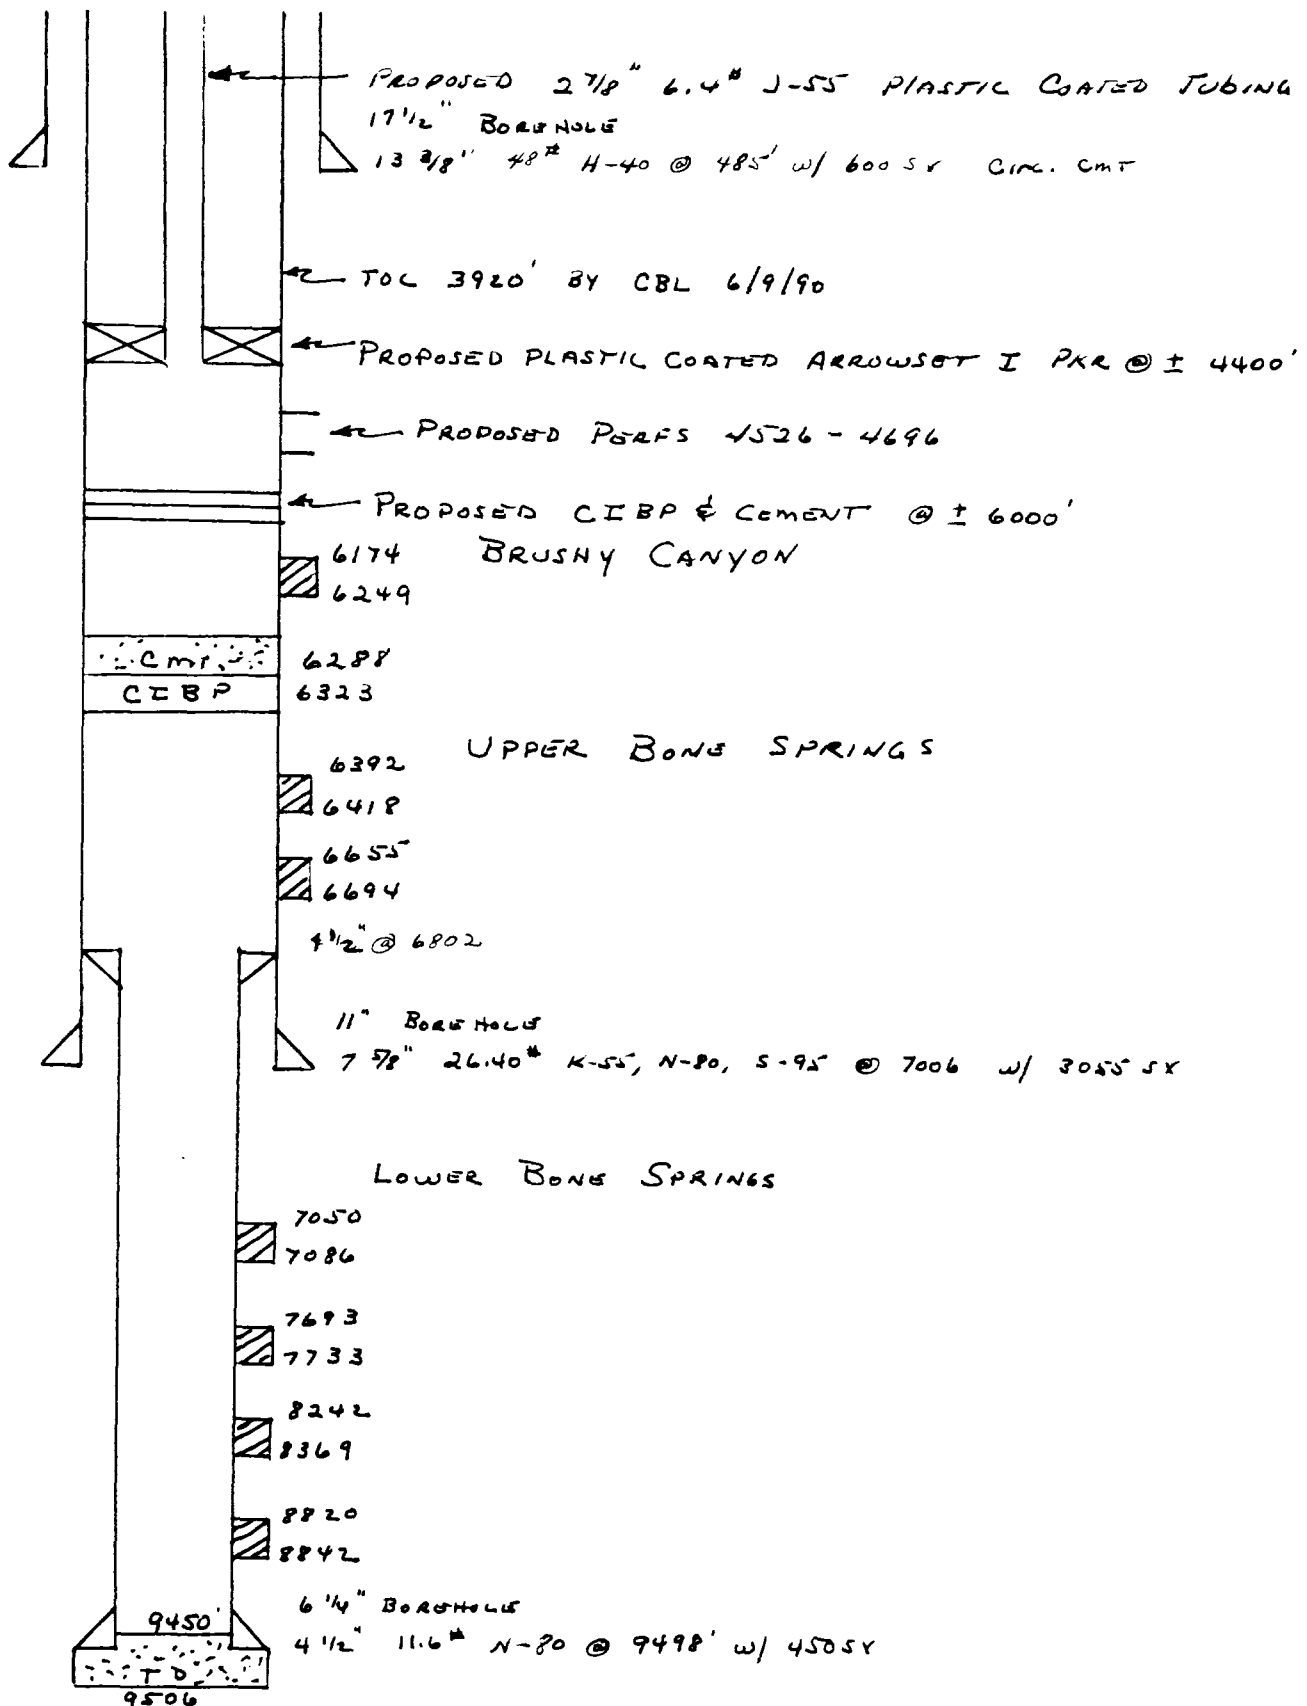 PROPOSED 2 7/8" 6.4# J-55 PLASTIC COATED TUBING
17 1/2" BOREHOLE
13 3/8" 48# H-40 @ 485' w/ 600 SX CIRC. CMT
TOC 3920' BY CBL 6/9/90
PROPOSED PLASTIC COATED ARROWSET I PKR @ ± 4400'
PROPOSED PERFS 4526 - 4696
PROPOSED CIBP & CEMENT @ ± 6000'
6174
BRUSHY CANYON
6249
Cmt.
6288
CIBP
6323
UPPER BONE SPRINGS
6392
6418
6655
6694
4 1/2" @ 6802
11" BOREHOLE
7 5/8" 26.40# K-55, N-80, S-95 @ 7006 w/ 3055 SX
LOWER BONE SPRINGS
7050
7086
7693
7733
8242
8369
8820
8842
6 1/4" BOREHOLE
9450'
4 1/2" 11.6# N-80 @ 9498' w/ 450 SX
TD
9506